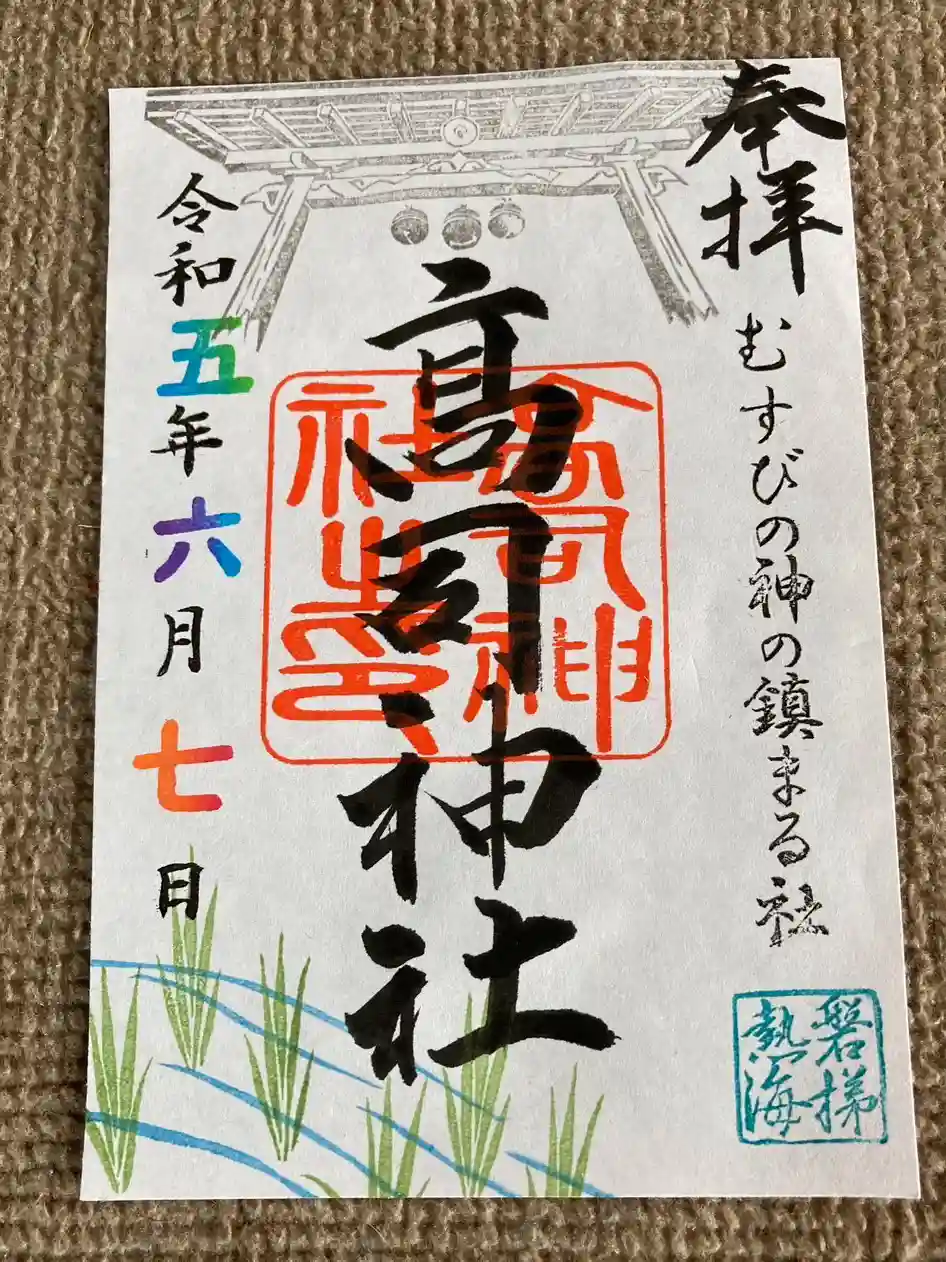 奉拝
むすびの神の鎮まる社
磐梯
熱海
高司神社
高司神
社之印
令和五年六月七日